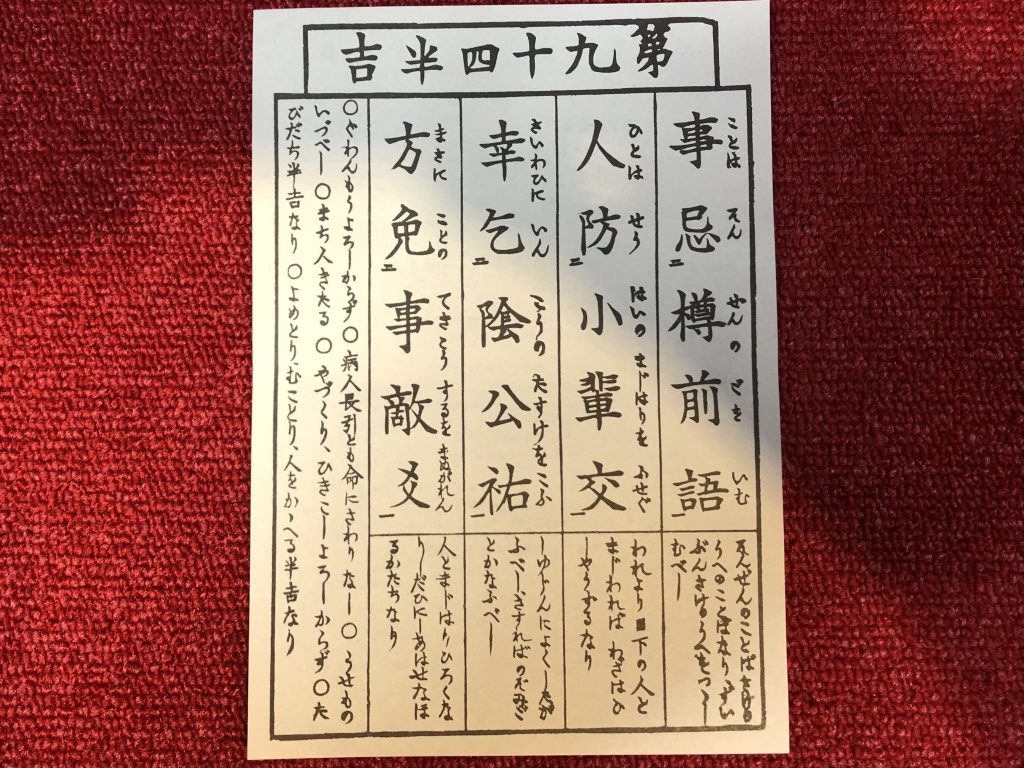 第九十四半吉
事忌樽前語
ことは そん せんの ごを いむ
そんぜんのことばさける
うへのことばなり
むべし
人防小輩交
ひとは せう はいの まじはりを ふせぐ
われより下の人と
まじわれば わざはひ
しやうずるなり
幸乞陰公祐
さいわひに いん こうの たすけをこふ
しゆじんによくしたが
ふべし、さすればのぞみご
とかなふべし
方免事敵爻
まさに ことの てきこう するを まぬがれん
人とまじはりひろくな
りしだひにしあはせなほ
るかたちなり
〇ぐわんもうよろしからず〇病人長引とも命にさわりなし〇うせもの
いづべし〇まち人きたる〇やづくり、ひきこしよろしからず〇た
びだち半吉なり〇よめとり、むことり、人をかゝへる半吉なり